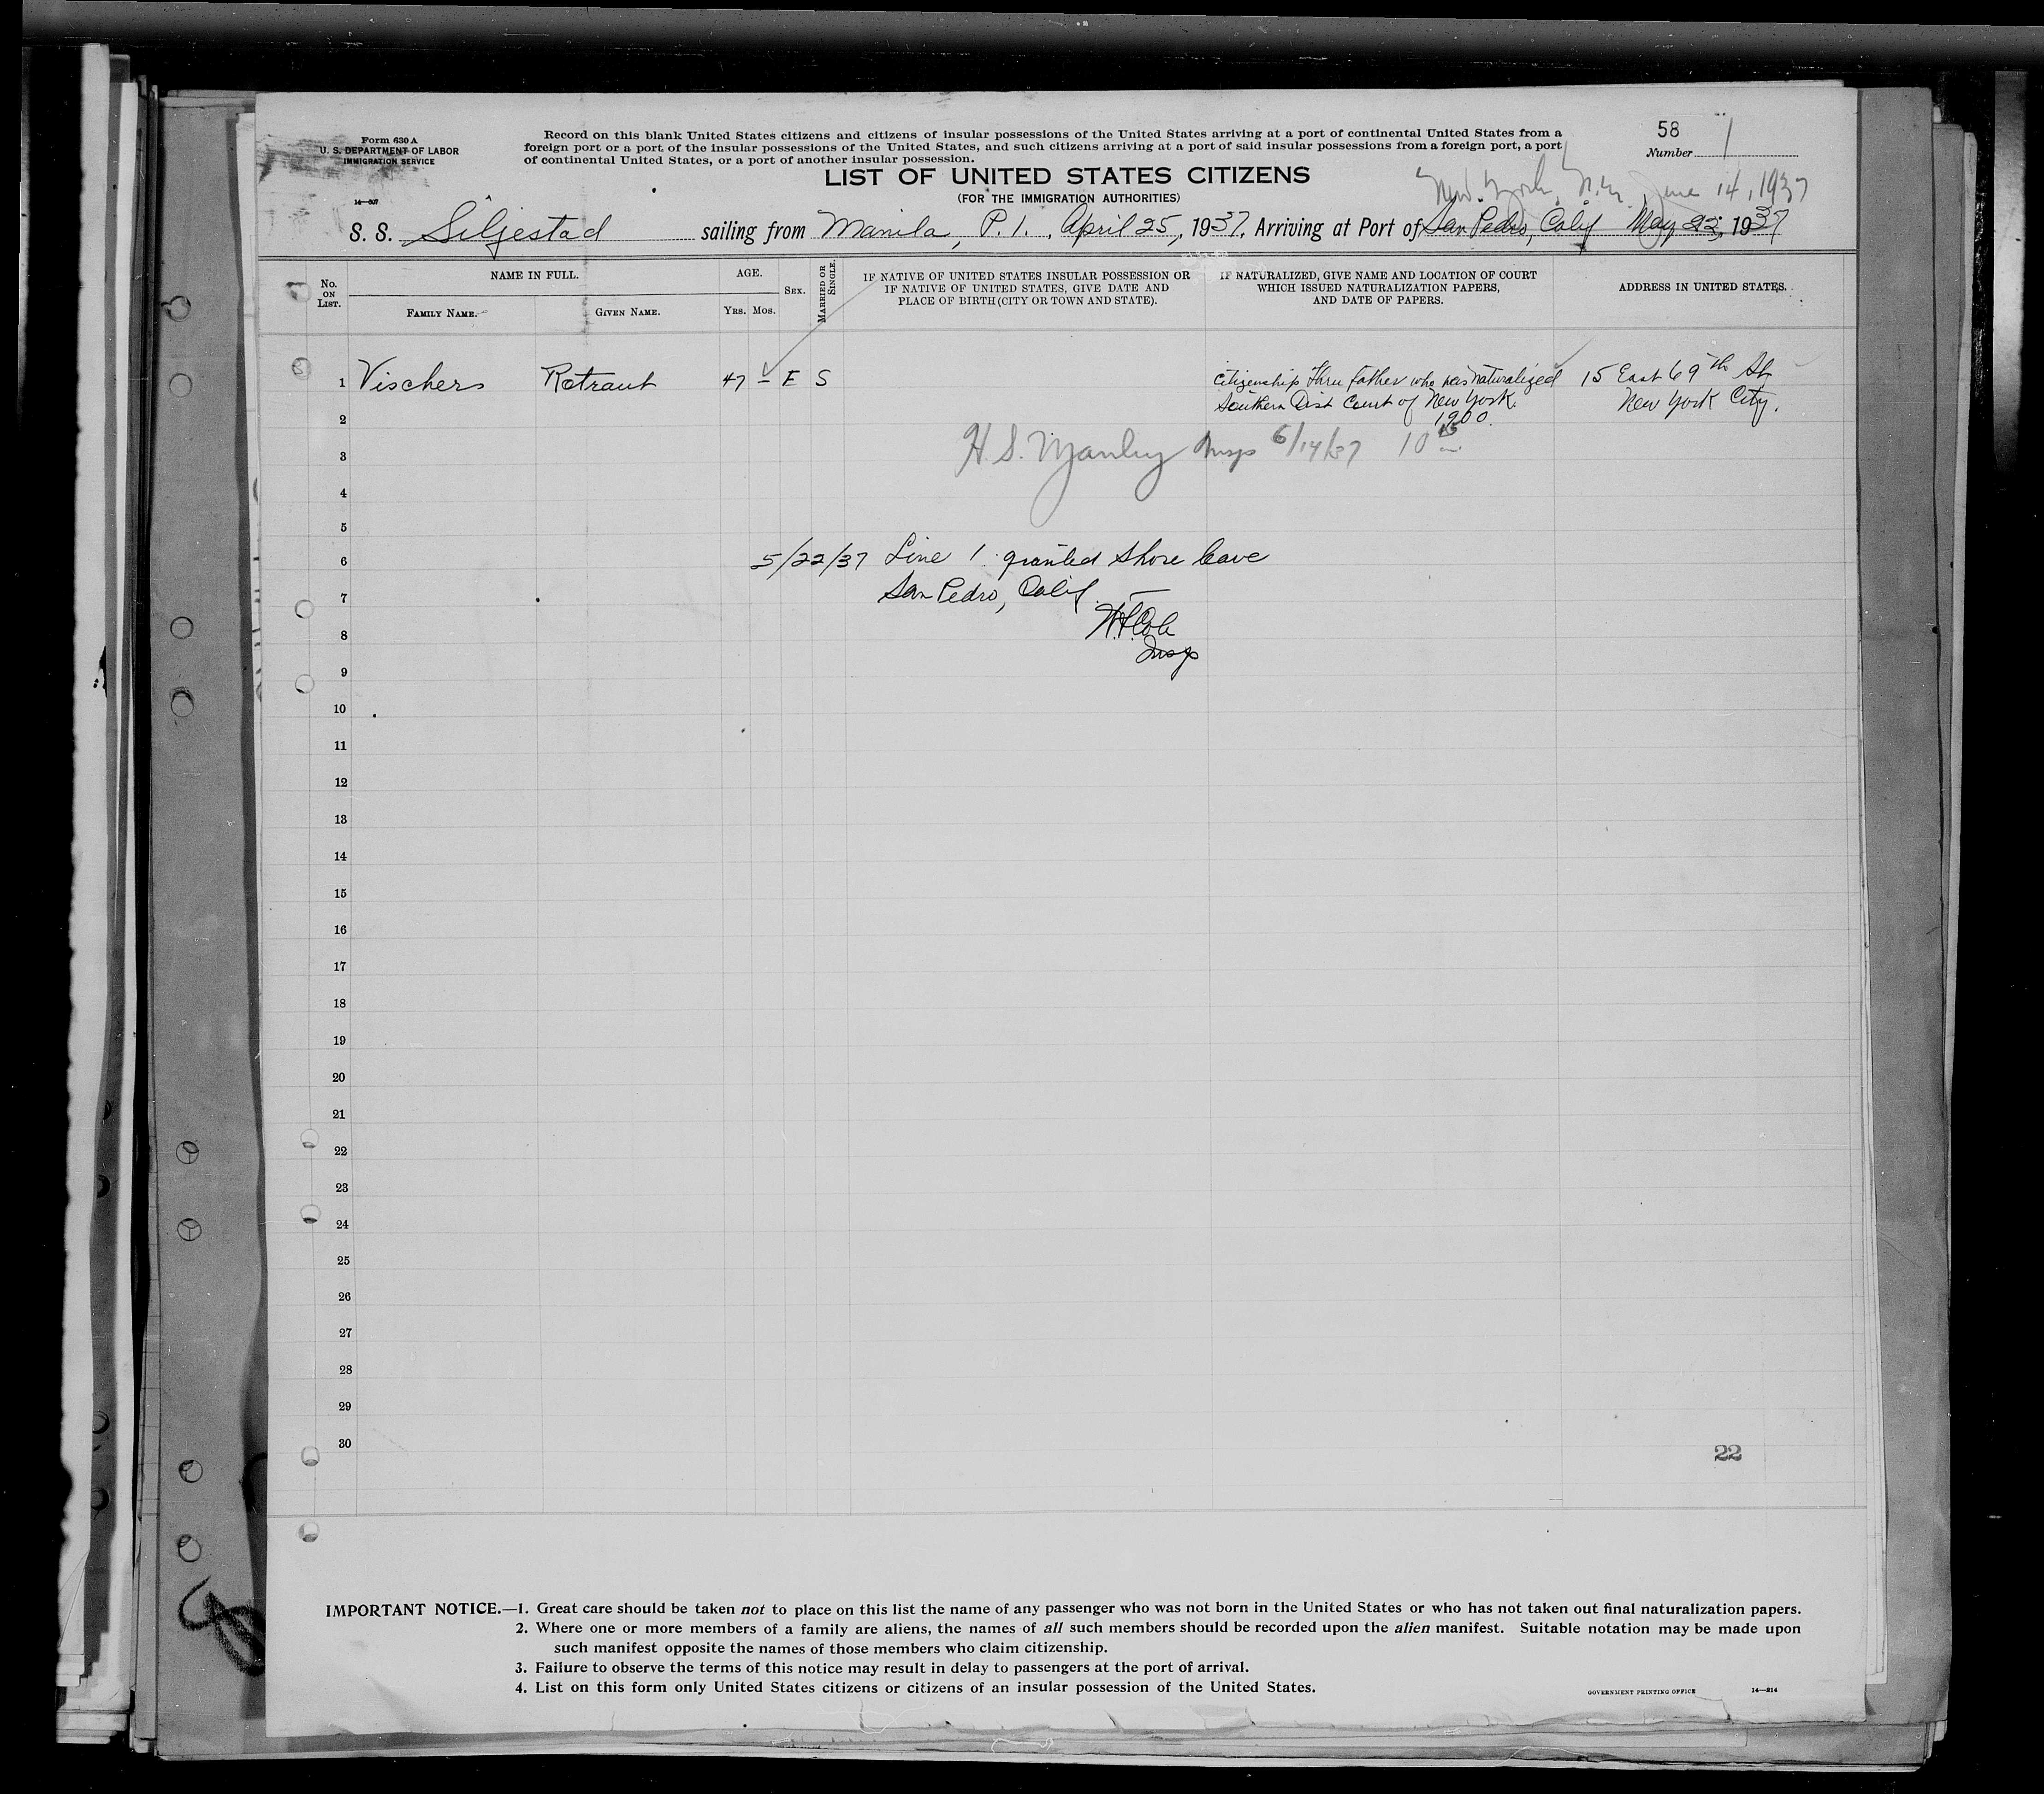 Form 630 A
U. S. DEPARTMENT OF LABOR
IMMIGRATION SERVICE
14—507
Record on this blank United States citizens and citizens of insular possessions of the United States arriving at a port of continental United States from a
foreign port or a port of the insular possessions of the United States, and such citizens arriving at a port of said insular possessions from a foreign port, a port
of continental United States, or a port of another insular possession.
58
Number 1
LIST OF UNITED STATES CITIZENS
(FOR THE IMMIGRATION AUTHORITIES)
New York, N.Y. June 14, 1937
S. S. Siljestad sailing from Manila, P. I., April 25, 1937, Arriving at Port of San Pedro, Calif May 22, 1937
No. ON LIST.
NAME IN FULL.
FAMILY NAME.
GIVEN NAME.
AGE.
YRS. MOS.
SEX.
MARRIED OR SINGLE.
IF NATIVE OF UNITED STATES INSULAR POSSESSION OR
IF NATIVE OF UNITED STATES, GIVE DATE AND
PLACE OF BIRTH (CITY OR TOWN AND STATE).
IF NATURALIZED, GIVE NAME AND LOCATION OF COURT
WHICH ISSUED NATURALIZATION PAPERS,
AND DATE OF PAPERS.
ADDRESS IN UNITED STATES.
1 Vischers Rotraut 47 – F S Citizenship thru father who was naturalized 15 East 69th St
Southern Dist Court of New York. New York City.
2 1900.
3 H. S. Manley Insp 6/14/37 10 15
4
5
6 5/22/37 Line 1 granted shore leave
7 San Pedro, Calif.
8
Insp
9
10
11
12
13
14
15
16
17
18
19
20
21
22
23
24
25
26
27
28
29
30
22
IMPORTANT NOTICE.—1. Great care should be taken not to place on this list the name of any passenger who was not born in the United States or who has not taken out final naturalization papers.
2. Where one or more members of a family are aliens, the names of all such members should be recorded upon the alien manifest. Suitable notation may be made upon
such manifest opposite the names of those members who claim citizenship.
3. Failure to observe the terms of this notice may result in delay to passengers at the port of arrival.
4. List on this form only United States citizens or citizens of an insular possession of the United States.
GOVERNMENT PRINTING OFFICE 14—314